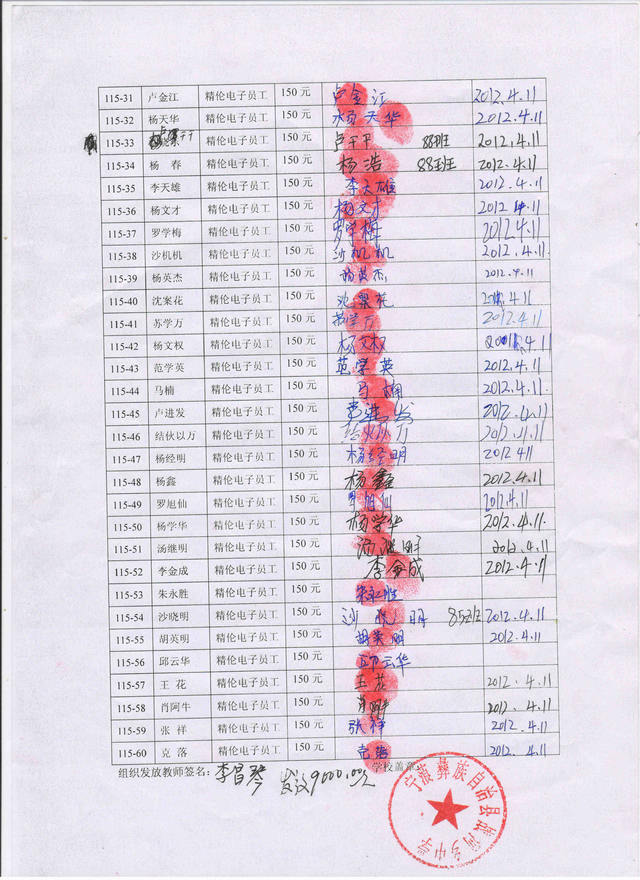 115-31 卢金江 精伦电子员工 150 元 卢金江 2012.4.11
115-32 杨天华 精伦电子员工 150 元 杨天华 2012.4.11
115-33 精伦电子员工 150 元 卢干干 88班 2012.4.11
115-34 杨 春 精伦电子员工 150 元 杨浩 88班 2012.4.11
115-35 李天雄 精伦电子员工 150 元 李天雄 2012.4.11
115-36 杨文才 精伦电子员工 150 元 杨文才 2012 4.11
115-37 罗学梅 精伦电子员工 150 元 罗学梅 2012.4.11
115-38 沙机机 精伦电子员工 150 元 沙机机 2012.4.11
115-39 杨英杰 精伦电子员工 150 元 杨英杰 2012.4.11
115-40 沈案花 精伦电子员工 150 元 沈案花 4.11
115-41 苏学万 精伦电子员工 150 元 苏学万 2012.4.11
115-42 杨文权 精伦电子员工 150 元 杨文权 4.11
115-43 范学英 精伦电子员工 150 元 范学英 2012.4.11
115-44 马楠 精伦电子员工 150 元 马楠 2012.4.11
115-45 卢进发 精伦电子员工 150 元 2012.4.11
115-46 结伙以万 精伦电子员工 150 元 2012.4.11
115-47 杨经明 精伦电子员工 150 元 杨经明 2012 411
115-48 杨鑫 精伦电子员工 150 元 杨鑫 2012.4.11
115-49 罗旭仙 精伦电子员工 150 元 罗旭仙 2012.4.11
115-50 杨学华 精伦电子员工 150 元 杨学华 2012.4.11
115-51 汤继明 精伦电子员工 150 元 2012.4.11
115-52 李金成 精伦电子员工 150 元 李金成 2012.4.11
115-53 朱永胜 精伦电子员工 150 元 朱永胜
115-54 沙晓明 精伦电子员工 150 元 沙晓明 85班 2012.4.11
115-55 胡英明 精伦电子员工 150 元 胡英明 2012.4.11
115-56 邱云华 精伦电子员工 150 元 邱云华
115-57 王 花 精伦电子员工 150 元 王花 2012.4.11
115-58 肖阿牛 精伦电子员工 150 元 2012.4.11
115-59 张 祥 精伦电子员工 150 元 张祥 2012.4.11
115-60 克 落 精伦电子员工 150 元 克落 2012.4.11
组织发放教师签名: 李昌琴 9000.00元 学校盖章:
宁蒗彝族自治县 乡中学